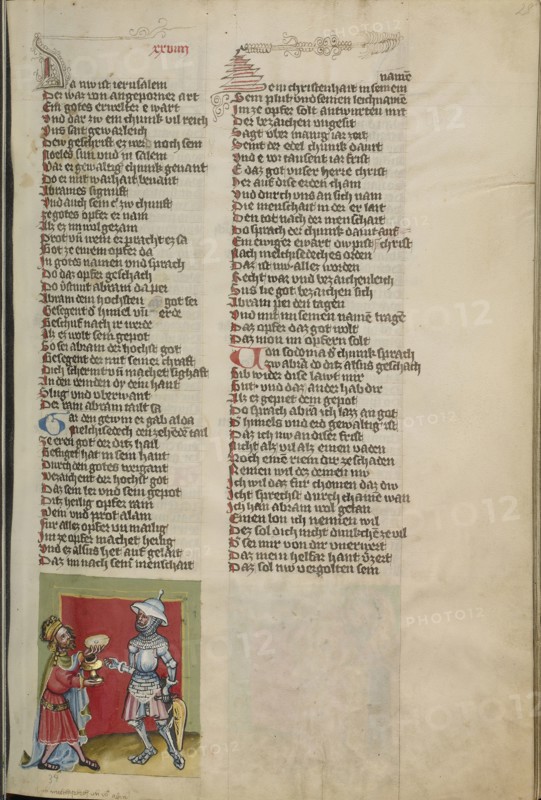 28
xxviii
Da nw ist ierusalem
Der war von angeporner art
Ein gotes erwelter e wart
Vnd dar zw ein chunik vil reich
Vns sait gewarleich
Dew geschrift er werd noch sem
Noeles sun vnd in salem
War er gewaltig chunik genant
Do er mit warhait benant
Abrames signuft
Vnd auch sein e zw chunft
ze gotes opfer er nam
Als ez im wol gezam
Prot vn wein er pracht ez sa
Got ze einem opfer da
In gotes namen vnd sprach
Do daz opfer geschach
Do
Abram dem hochsten got sei
Gesegent d himel vn erde
Geschuf nach ir werde
Als er wolt sein gepot
So sei abram der hochst got
Gesegent der mit seiner chraft
Dich schermt vn machet sighaft
In den veinden dy dein hant
Slug vnd vberwant
Der nam abram tailt sa
Gar den gewin er gab al da
Melchisedech den zehede tail
Ze eren got der diz hail
Gefuget hat in sein hant
Durch den gotes weigant
Verzaichent der hochst got
Daz sein ler vnd sein gepot
Ditz heilig opfer nam
Wein vnd prot alsam
Fur alles opfer vn mailig
Im ze opfer machet heilig
Vnd ez alsus het auf gelait
Daz im nach seiner menschait
name
Dem christenhait in seinem
Sein plut vnd seinen leichname
Im ze opfer solt antwurten mit
Der bezaichen vngesit
Sagt vber manig iar zeit
Seint der edel chunik dauit
Vnd e vor tausent iar frist
E daz got vnser herre christ
Her auf dise erden cham
Vnd durch vns an sich nam
Die menschait in der er lait
Den tot nach der menschait
Do sprach der chunik dauit auf christ
Ein ewiger ewart dw pist
Nach melchisedeches orden
Daz ist nw alles worden
Recht war vnd bezaichenleich
Sus lie got bezaichen sich
Abram pei den tagen
Vnd mit im seinen name tragen
Daz opfer daz got wolt
Daz mon im opfern solt
Von sodoma d chunik sprach
Zw abra do ditz alsus geschach
Gib wider dise lawt mir
Gut vnd daz ander hab dir
Als er gepiet dein gepot
Do sprach abra ich lazz an got
D himels vnd erd gewaltig ist
Daz ich nw an diser frist
Nicht als vil als einen vaden
Noch eine riem dir ze schaden
Nemen wil der deinen nw
Ich wil daz fur chomen daz dw
Icht sprechst durch chainē wan
Ich han abram wol getan
Einen lon ich nemen wil
Des sol dich nicht dunkche ze vil
D sei mir von dir vnerwert
Daz mein helfar hant v̄zert
Daz sol nw vergolten sein